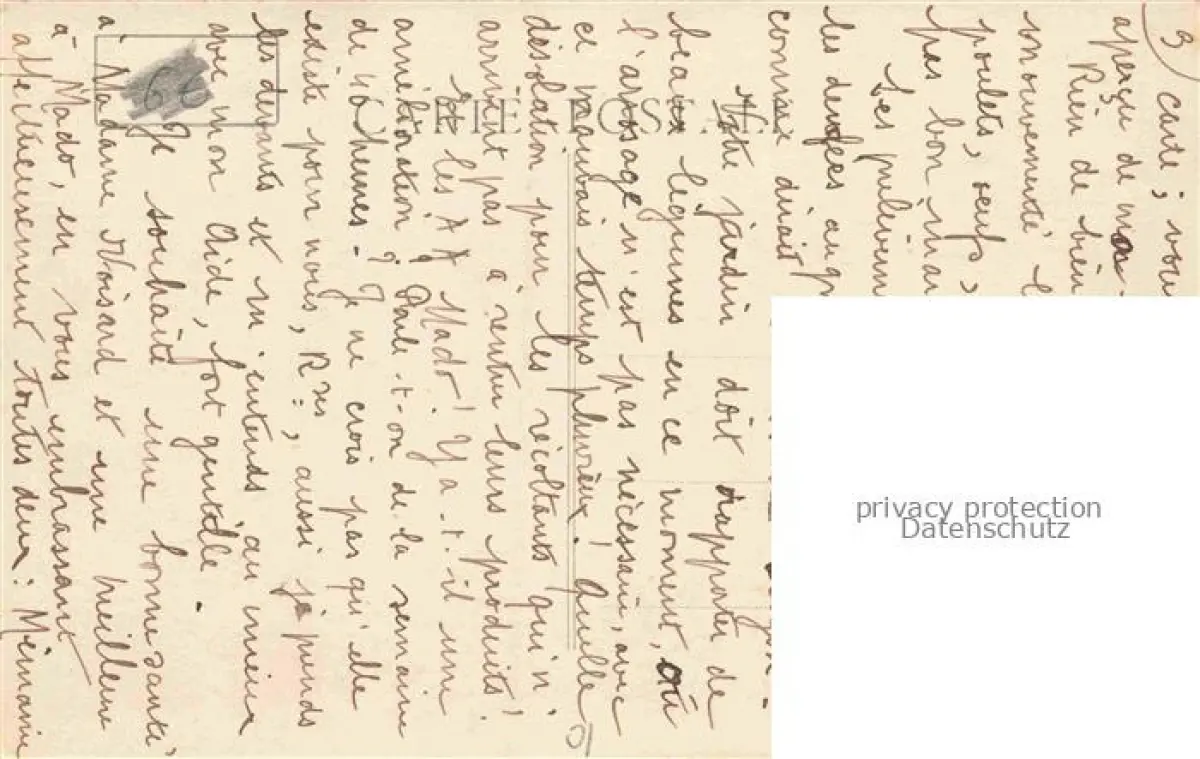 3
carte ; vou
aperçu de mon
Rien de bien
mouvementé l
poulets, oeufs
pas bon mar
Les prélèvem
les denrées au
comme dirait
Votre jardin doit rapporter de
beaux légumes en ce moment, où
l'arrosage n'est pas nécessaire, avec
ce mauvais temps pluvieux ! Quelle
désolation pour les récoltants qui n'
arrivent pas à rentrer leurs produits !
Et les A A Mado ! Y a-t-il une
amélioration ? Parle-t-on de la semaine
de 40 heures - Je ne crois pas qu'elle
existe pour nous, Rses, aussi je prends
les devants et m'entends au mieux
avec mon Aide, fort gentille -
Je souhaite une bonne santé
à Madame Noisard et une meilleure
à Mado, en vous embrassant
affectueusement toutes deux : Mémanie
CARTE POSTALE
60
privacy protection
Datenschutz